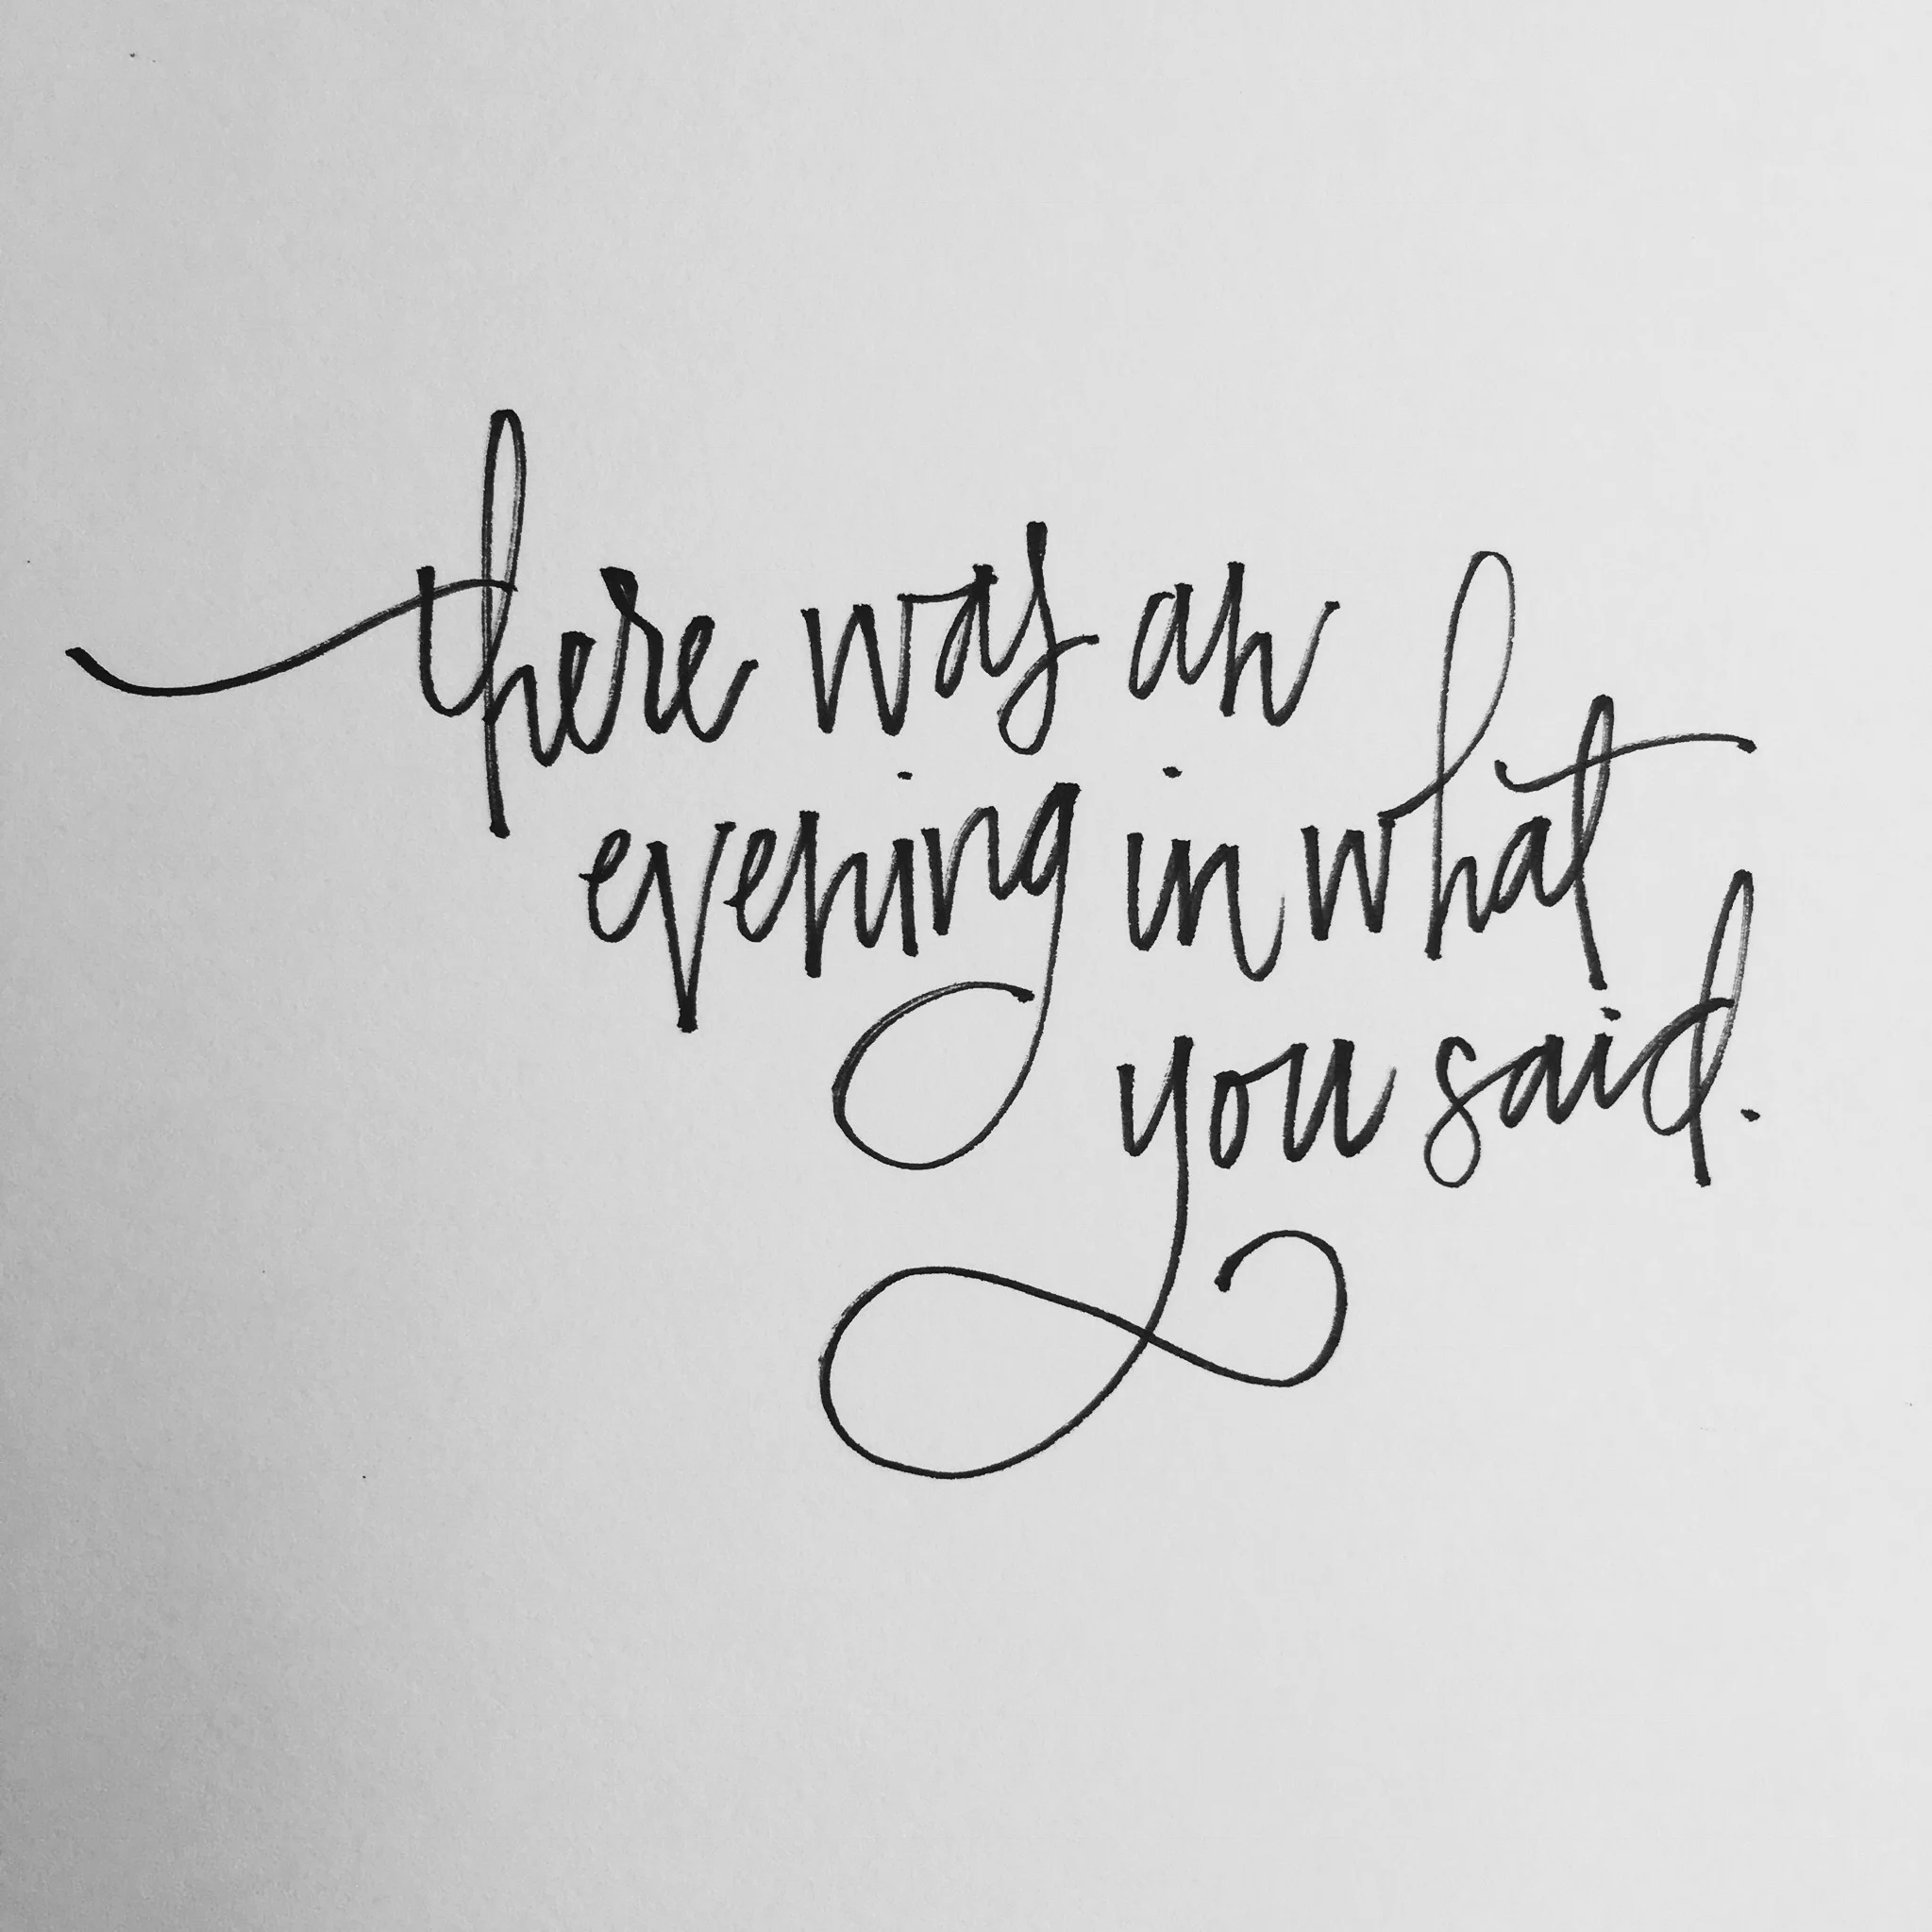 there was an
evening in what
you said.